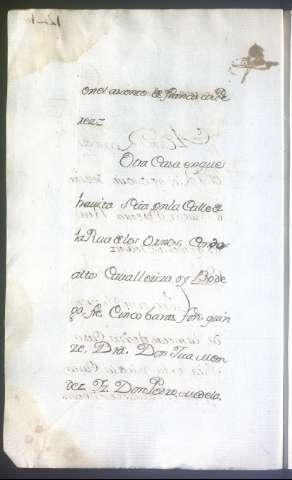 en el avance de Francisco Pe
rez =
Otra Casa en que
havita Sita en la Calle de
la Rua de los Ornos, Con
alto Cavalleriza y Bode
ga, fre Cinco baras fon. quin
ze, Dra. Don Juan Men
dez Yz. Don Pedro